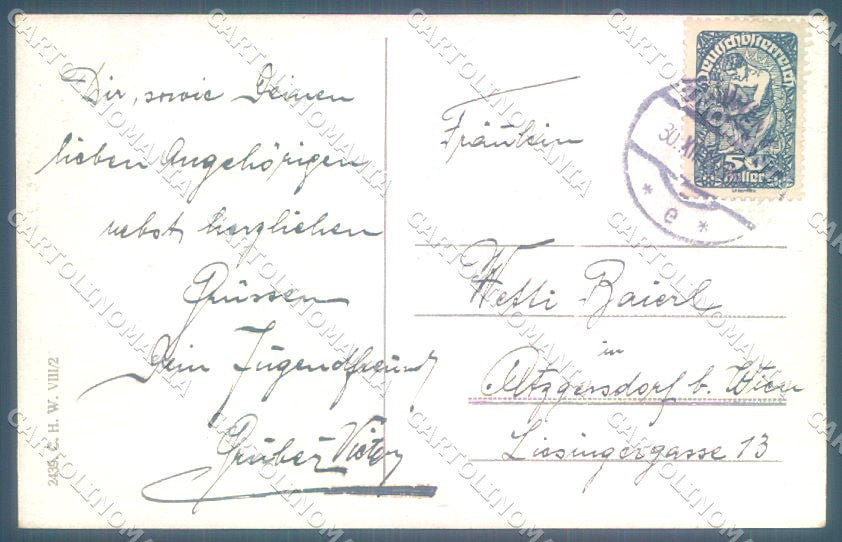 Dir, sowie Deinen
lieben Angehörigen
nebst herzlichen
Grüssen
Dein Jugendfreund
Gruber Victor
2439, C. H. W. VIII/2
Fräulein
Wetti Baierl
in
Atzgersdorf b. Wien
Liesingergasse 13
Deutschösterreich
50
Heller
30. XII
* e *
CARTOLINOMANIA